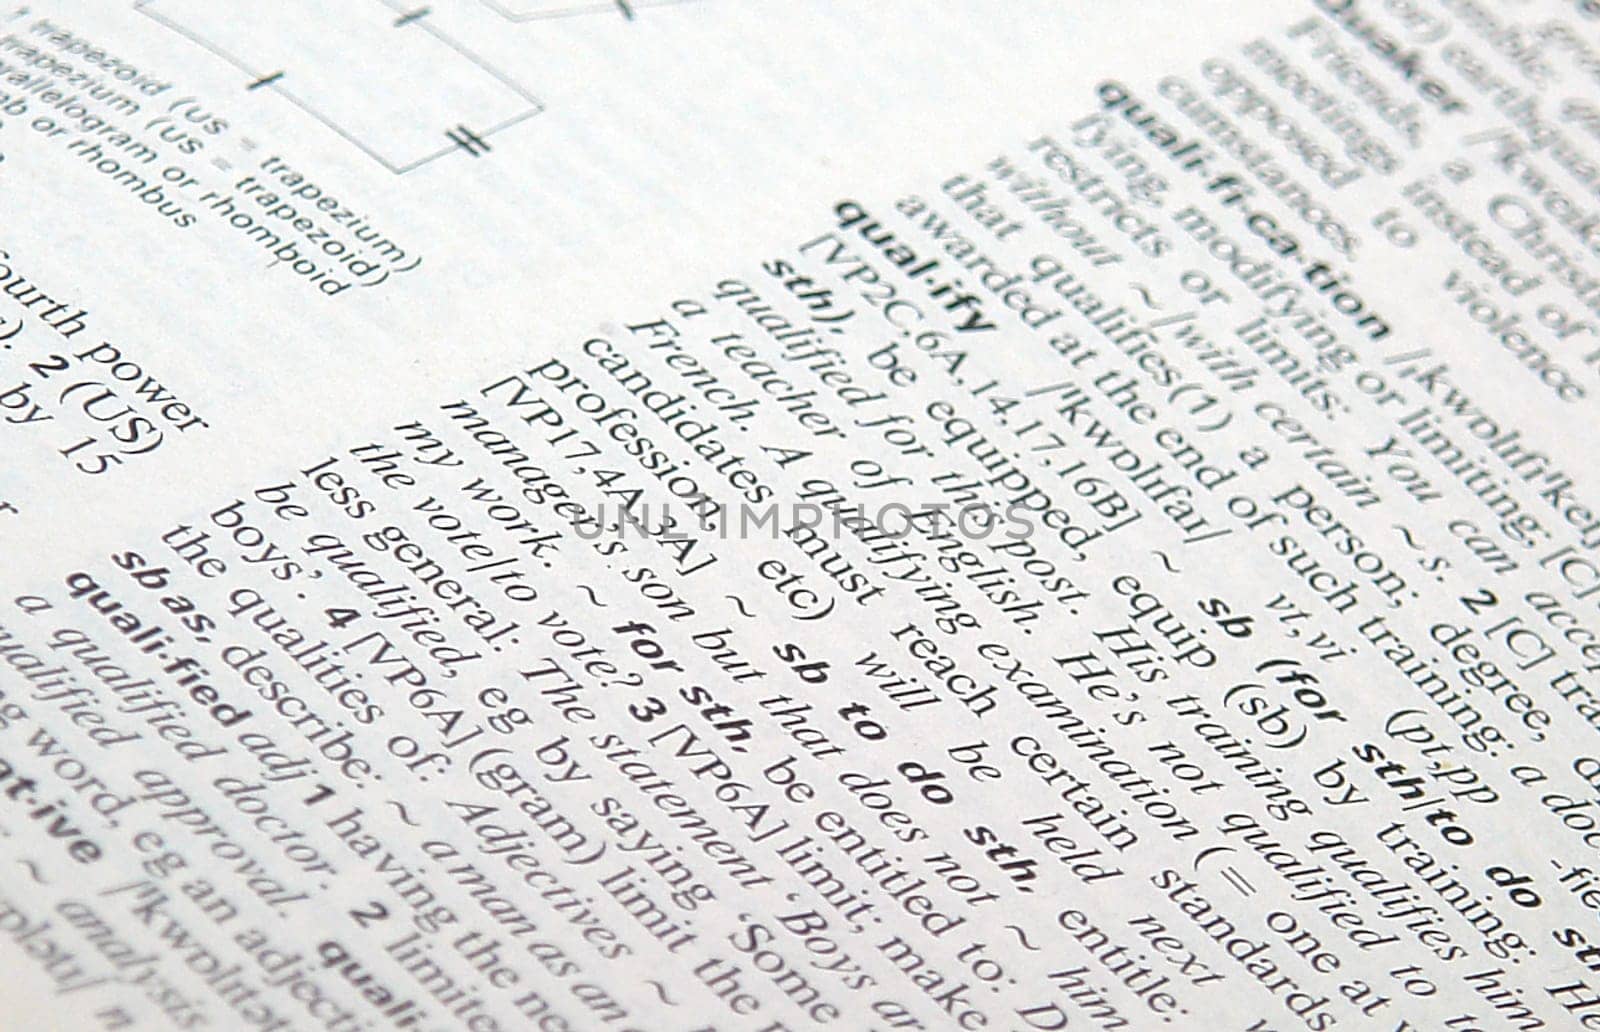 trapezoid (US = trapezium)
trapezium (US = trapezoid)
parallelogram or rhomboid
or rhombus
fourth power
2 (US)
by 15
Quaker
Friends, a Christ
meetings instead of
opposed to violence
cumstances.
quali·fi·ca·tion
fying, modifying or limiting;
restricts or limits: You can accep
without ~/with certain ~s. 2 [C] tra
that qualifies(1) a person; degree, d
awarded at the end of such training: a doc
qual·ify /ˈkwɒlɪfaɪ/ vt,vi (pt,pp -fie
[VP2C,6A,14,17,16B] ~ sb (for sth/to do st
sth), be equipped, equip (sb) by training: He
qualified for this post. His training qualifies him
a teacher of English. He's not qualified to t
French. A qualifying examination (= one at
candidates must reach certain standards
profession, etc) will be held next w
[VP17,4A,3A] ~ sb to do sth, entitle:
manager's son but that does not ~ him
my work. ~ for sth, be entitled to: D
the vote/to vote? 3 [VP6A] limit; make
less general: The statement 'Boys ar
be qualified, eg by saying 'Some
boys'. 4 [VP6A] (gram) limit the
the qualities of: Adjectives ~
sb as, describe: ~ a man as an
quali·fied adj 1 having the ne
a qualified doctor. 2 limite
qualified approval.
word, eg an adjecti
quali·
at·ive
~ analysis
UNLIMPHOTOS